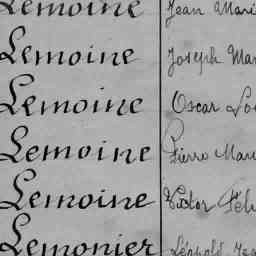 Lemoine Jean Mari
Lemoine Joseph Mar
Lemoine Oscar Lo
Lemoine Pierre Mar
Lemoine Victor Féli
Lemonier Léopold Jea